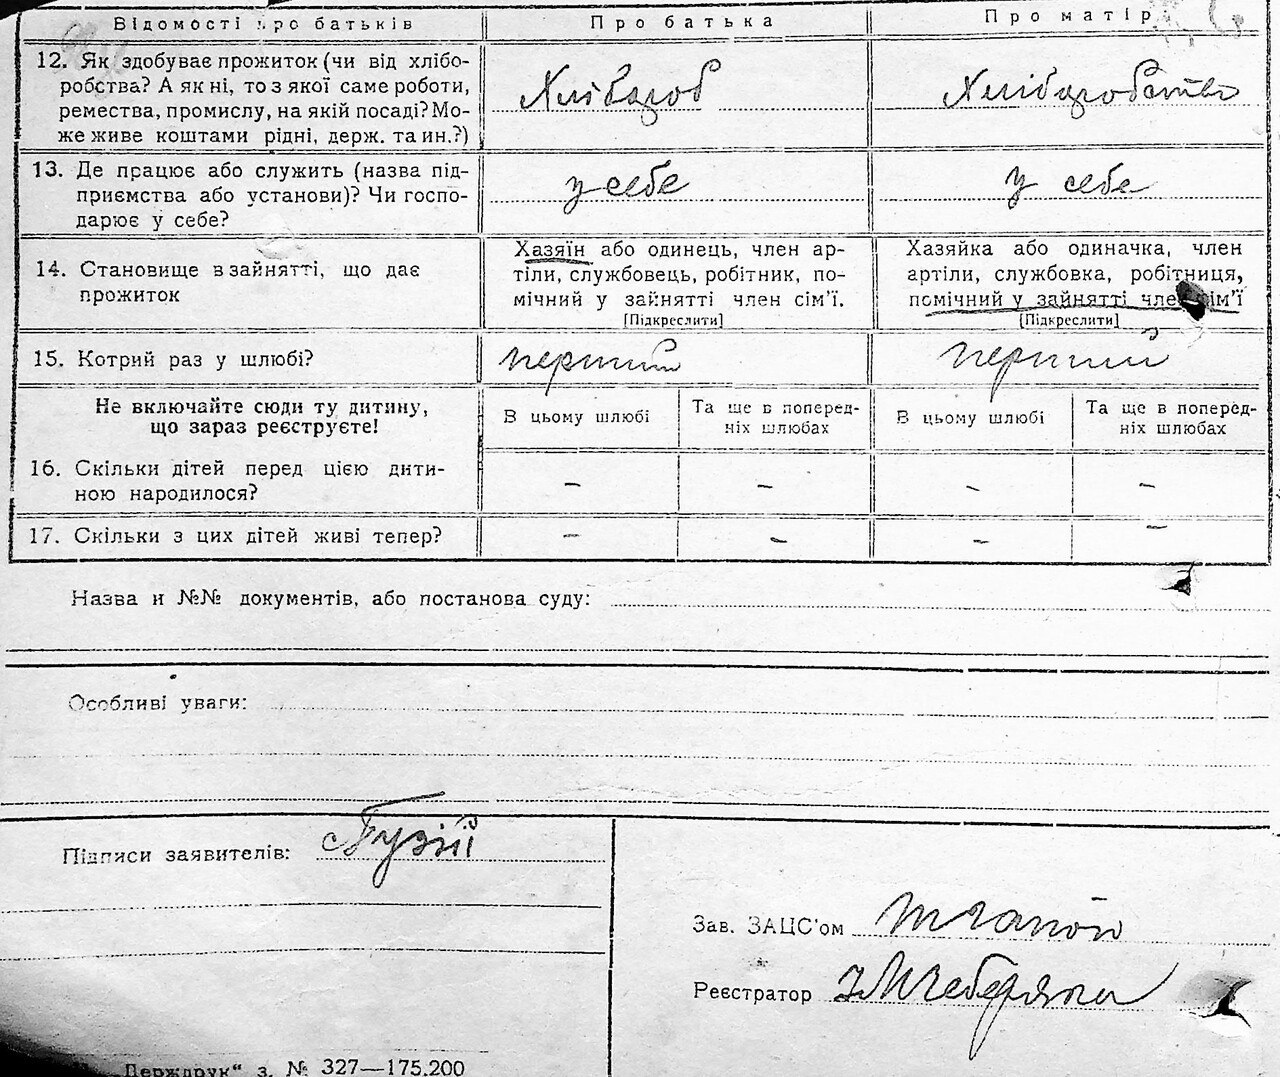 Відомості про батьків
Про батька
Про матір
12. Як здобуває прожиток (чи від хлібо-
робства? А як ні, то з якої саме роботи,
ремества, промислу, на якій посаді? Мо-
же живе коштами рідні, держ. та ин.?)
Хлібороб
Хліборобство
13. Де працює або служить (назва під-
приємства або установи)? Чи госпо-
дарює у себе?
у себе
у себе
14. Становище в зайнятті, що дає
прожиток
Хазяїн або одинець, член ар-
тіли, службовець, робітник, по-
мічний у зайнятті член сім'ї.
[Підкреслити]
Хазяйка або одиначка, член
артіли, службовка, робітниця,
помічний у зайнятті член сім'ї
[Підкреслити]
15. Котрий раз у шлюбі?
перший
перший
Не включайте сюди ту дитину,
що зараз реєструєте!
В цьому шлюбі
Та ще в поперед-
ніх шлюбах
В цьому шлюбі
Та ще в поперед-
ніх шлюбах
16. Скільки дітей перед цією дити-
ною народилося?
– – – –
17. Скільки з цих дітей живі тепер?
– – – –
Назва и №№ документів, або постанова суду:
Особливі уваги:
Підписи заявителів:
Зав. ЗАЦС'ом
Реєстратор
Держдрук“ з. № 327—175.200